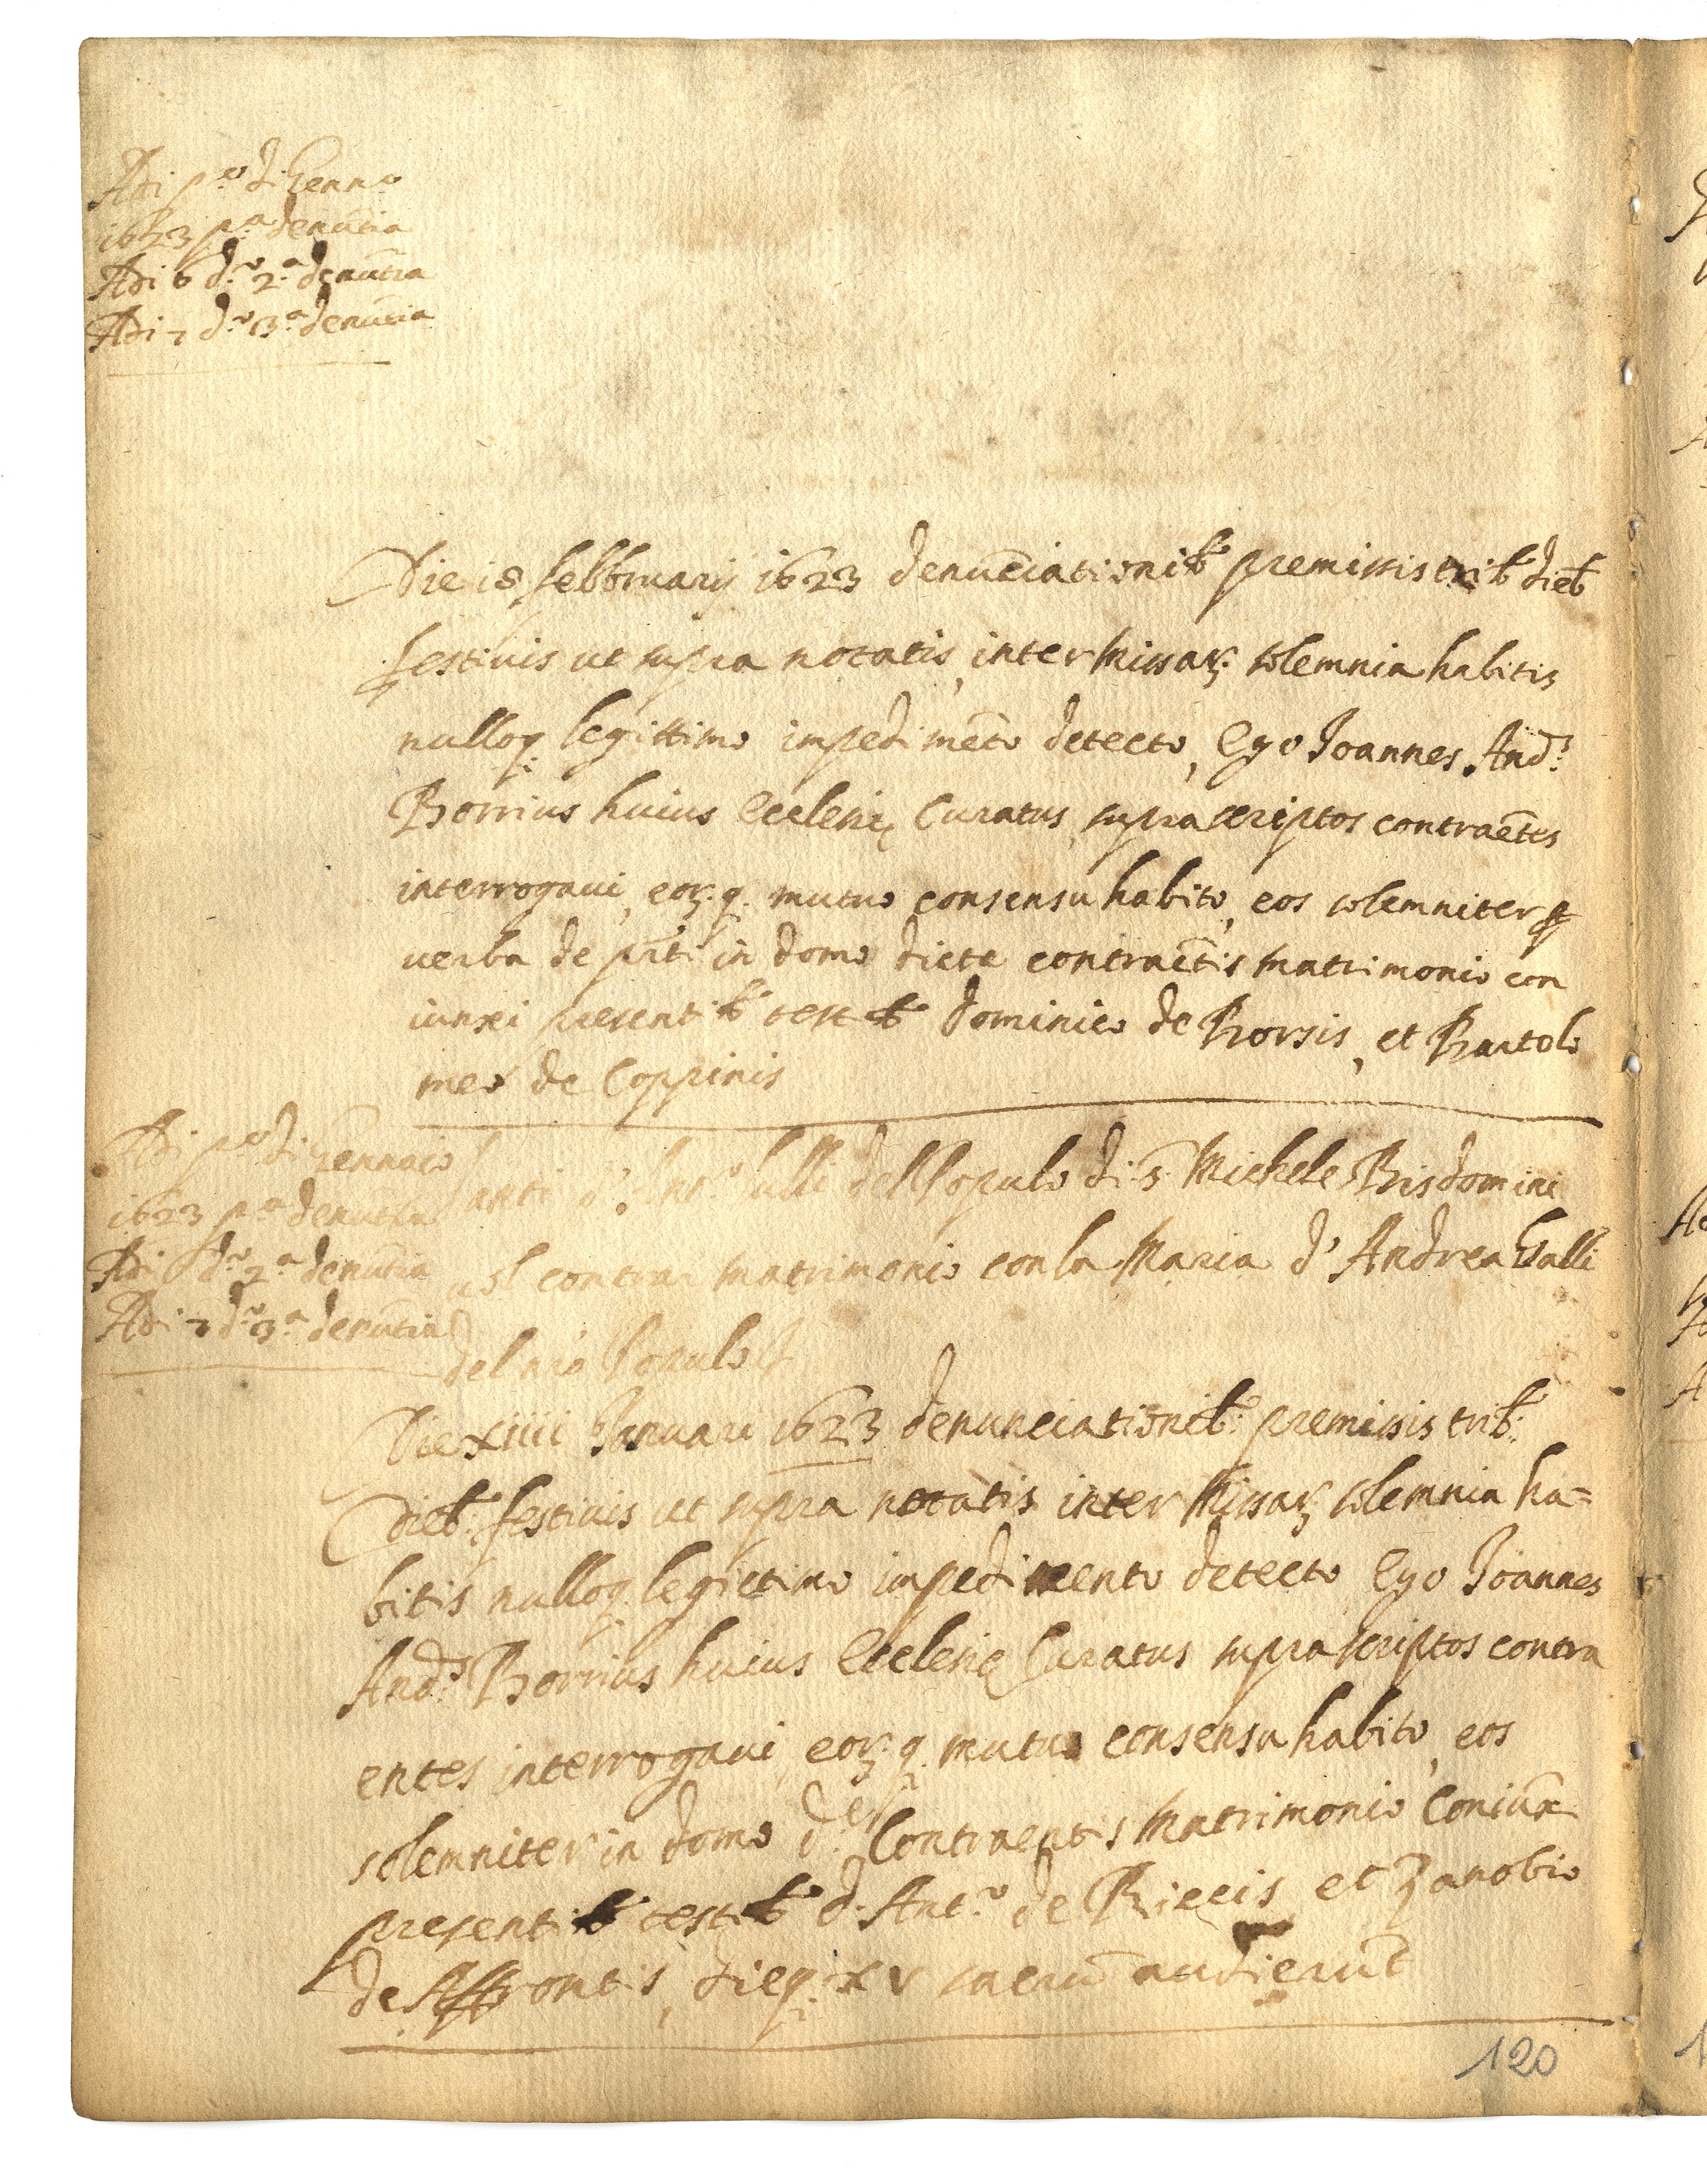 Adi p.º di Genn.º
1623 p.ª denūtia
Adi 6 d.º 2.ª denūtia
Adi 7 d.º 3.ª denūtia
Die 18 febbruarij 1623 denūciationib. premissis trib. dieb.
festiuis ut supra notatis, inter Missarꝫ solemnia habitis
nulloq. legittimo impedimēto detecto, Ego Joannes And.ˢ
Borrius huius Ecclesię Curatus, supra scriptos contraētes
interrogaui, eorꝫ.q. mutuo consensu habito, eos solemniter ꝑ
uerba de pn̄ti in domo dicte contraētis matrimonio con
iunxi present.b. test.b. Dominico de Borsis, et Bartolo
meo de Coppinis
Adi p.º di Gennaio
1623 p.ª denūtia
Adi 6 d.º 2.ª denūtia
Adi 7 d.º 3.ª denūtia
Santi d'Ant.º del Populo di S. Michele Bisdomini
uol contrar matrimonio con la Maria d'Andrea Galli
del nr̄o Populo
Die xiiii Januari 1623 denunciationib. premissis trib.
dieb. festiuis ut supra notatis inter Missarꝫ solemnia ha=
bitis nulloq. legictimo impedimento detecto Ego Joannes
And.ˢ Borrius huius Ecclesię Curatus supra scriptos contra
entes interrogaui, eorꝫ.q. mutuo consensu habito, eos
solemniter in domo d.ᵉ Contraentis Matrimonio Coniūx
presentib. testib. d. Ant.º de Riccis, et Zanobio
de Affrontis, dieq. xv sacrū audierūt
120